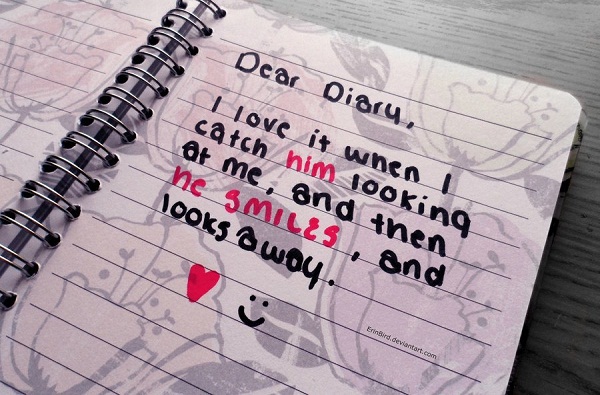 Dear Diary,
I love it when I
catch him looking
at me, and then
he smiles, and
looks away.
ErinBird.deviantart.com